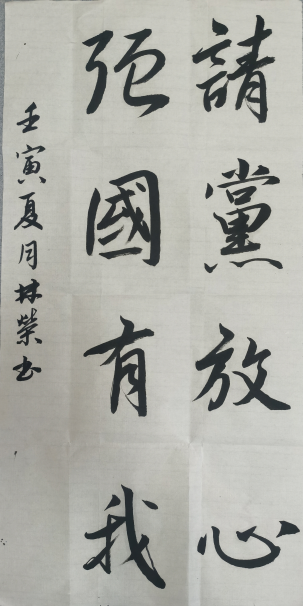 請黨放心
強國有我
壬寅夏月林榮书